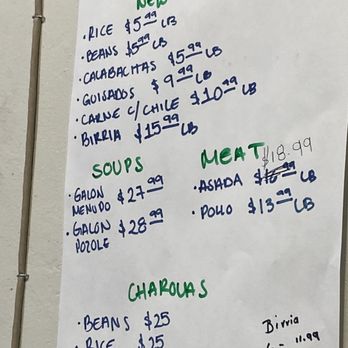 NEW
·RICE $5.99 LB
·BEANS $5.99 LB
·CALABACITAS $5.99 LB
·GUISADOS $9.99 LB
·CARNE C/ CHILE $10.99 LB
·BIRRIA $15.99 LB
SOUPS
·GALON MENUDO $27.99
·GALON POZOLE $28.99
MEAT
$18.99
·ASADA LB
·POLLO $13.99 LB
CHAROLAS
·BEANS $25
·RICE $25
Birria
11.99